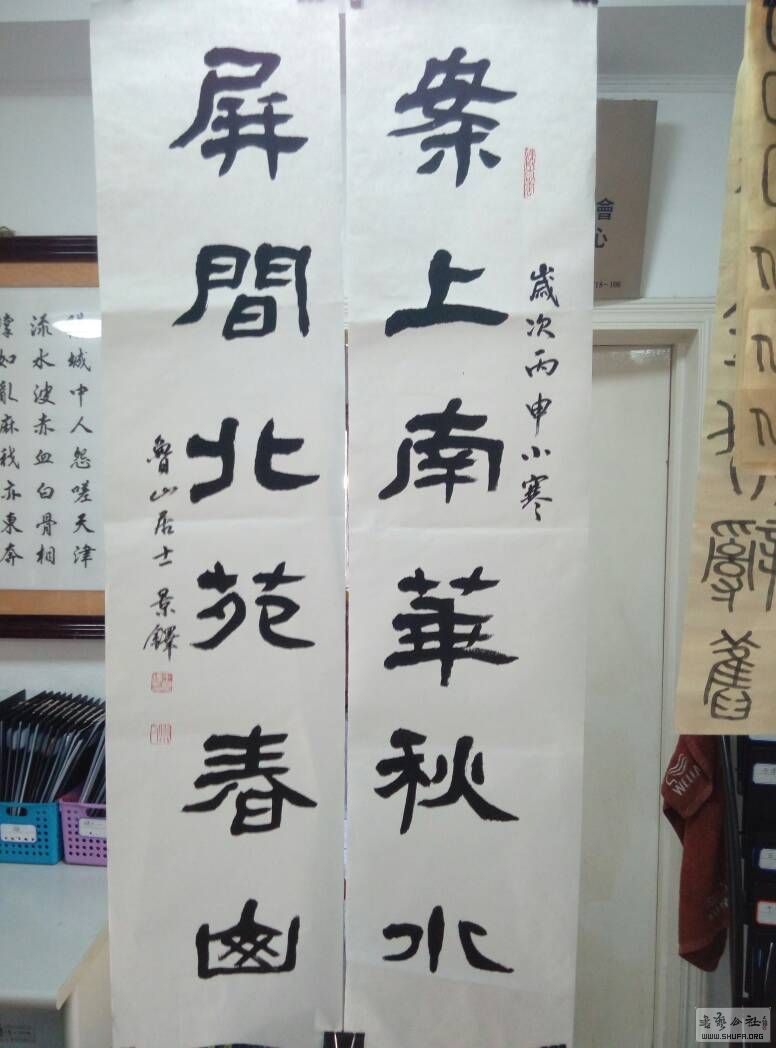 案上南華秋水
歲次丙申小寒
屏間北苑春山
魯山居士景鐸
陽城中人怨嗟天津
流水波赤血白骨相
撐如亂麻我亦東奔
會
心
舊
書艺公社
WWW.SHUFA.ORG